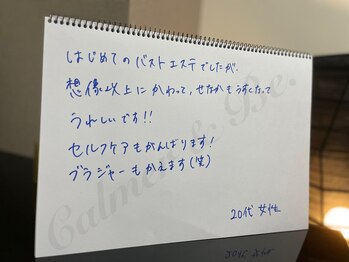 はじめてのバストエステでしたが、
想像以上にかわって、せなかもうすくなって
うれしいです!!
セルフケアもがんばります!
ブラジャーもかえます(笑)
20代 女性